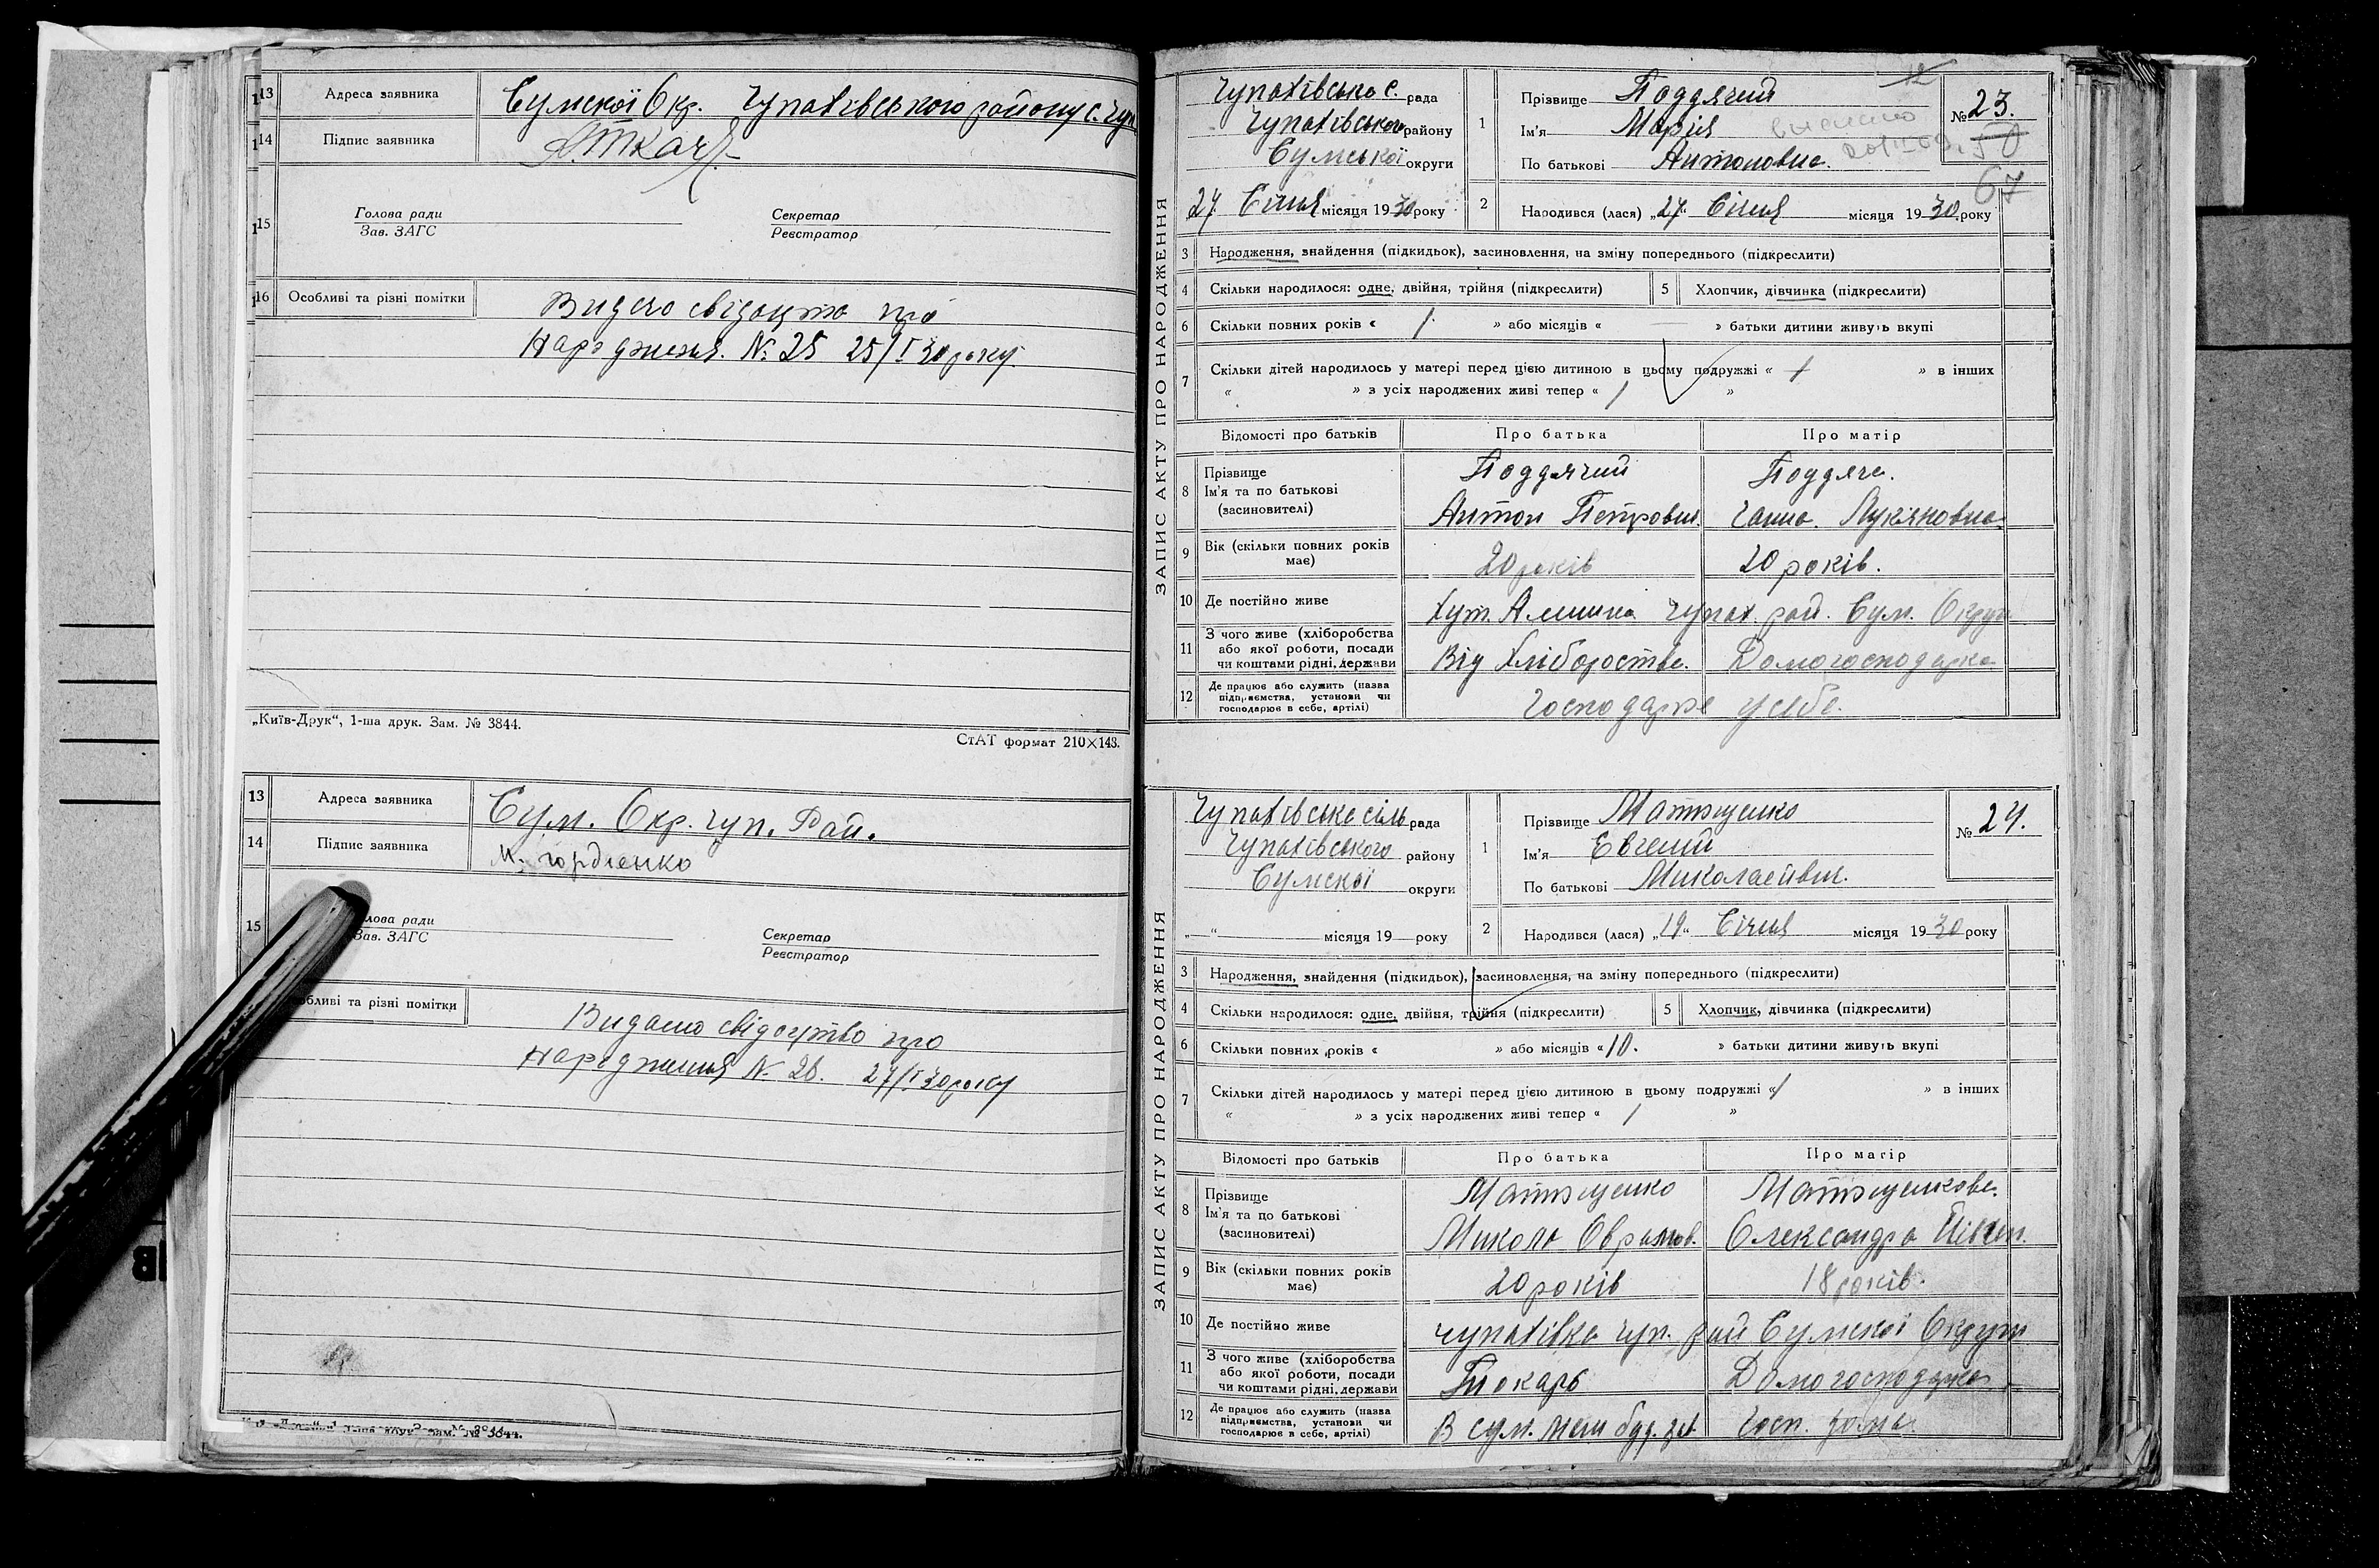 13 Адреса заявника Сумскої Окр. Чупахівського району с. Чуп
14 Підпис заявника А. Ткач
15 Голова ради Секретар
Зав. ЗАГС Реєстратор
16 Особливі та різні помітки Видано свідоцтво про
Народження. № 25 25/I 30 року.
„Київ-Друк“, 1-ша друк. Зам. № 3844.
СтАТ формат 210×148.
13 Адреса заявника Сум. Окр. Чуп. Рай.
14 Підпис заявника М. Гордієнко
15 лова ради Секретар
Зав. ЗАГС Реєстратор
обливі та різні помітки Видано свідоцтво про
Народження № 26. 27/I 30 року
Зам. № 3844.
ЗАПИС АКТУ ПРО НАРОДЖЕННЯ
Чупахівська с. рада
Чупахівського району
Сумської округи
27 Січня місяця 1930 року
12
1 Прізвище Поддячий
Ім'я Марія
По батькові Антоновна.
№ 23.
50
67
2 Народився (лася) „27“ Січня місяця 1930 року
3 Народження, знайдення (підкидьок), засиновлення, на зміну попереднього (підкреслити)
4 Скільки народилося: одне, двійня, трійня (підкреслити) 5 Хлопчик, дівчинка (підкреслити)
6 Скільки повних років « 1. » або місяців « — » батьки дитини живуть вкупі
7 Скільки дітей народилось у матері перед цією дитиною в цьому подружжі « 1 » в інших
« » з усіх народжених живі тепер « 1 »
Відомості про батьків Про батька Про матір
8 Прізвище Поддячий Поддяча.
Ім'я та по батькові
(засиновителі) Антон Петрович Ганна. Лукяновна.
9 Вік (скільки повних років має) 20 років 20 років.
10 Де постійно живе Хут. Чупах. рай. Сум. Округи
11 З чого живе (хліборобства
або якої роботи, посади
чи коштами рідні, держави Від Хліборобства. Домогосподарка
12 Де працює або служить (назва
підприємства, установи чи
господарює в себе, артілі) Господарює у себе.
ЗАПИС АКТУ ПРО НАРОДЖЕННЯ
Чупахівська сіль рада
Чупахівського району
Сумскої округи
„ “ місяця 19 року
1 Прізвище Матющенко
Ім'я Евгений
По батькові Миколаєйвич.
№ 24.
2 Народився (лася) „19“ Січня місяця 1930 року
3 Народження, знайдення (підкидьок), засиновлення, на зміну попереднього (підкреслити)
4 Скільки народилося: одне, двійня, трійня (підкреслити) 5 Хлопчик, дівчинка (підкреслити)
6 Скільки повних років « » або місяців « 10. » батьки дитини живуть вкупі
7 Скільки дітей народилось у матері перед цією дитиною в цьому подружжі « 1 » в інших
« » з усіх народжених живі тепер « 1 »
Відомості про батьків Про батька Про матір
8 Прізвище Матющенко Матющенкова.
Ім'я та по батькові
(засиновителі) Микола Оврамов. Олександра
9 Вік (скільки повних років має) 20 років 18 років.
10 Де постійно живе Чупахівка Чуп. рай Сумскої Округи
11 З чого живе (хліборобства
або якої роботи, посади
чи коштами рідні, держави Токарь Домогосподарка
12 Де працює або служить (назва
підприємства, установи чи
господарює в себе, артілі) В Сум. маш буд. зав. Госп.